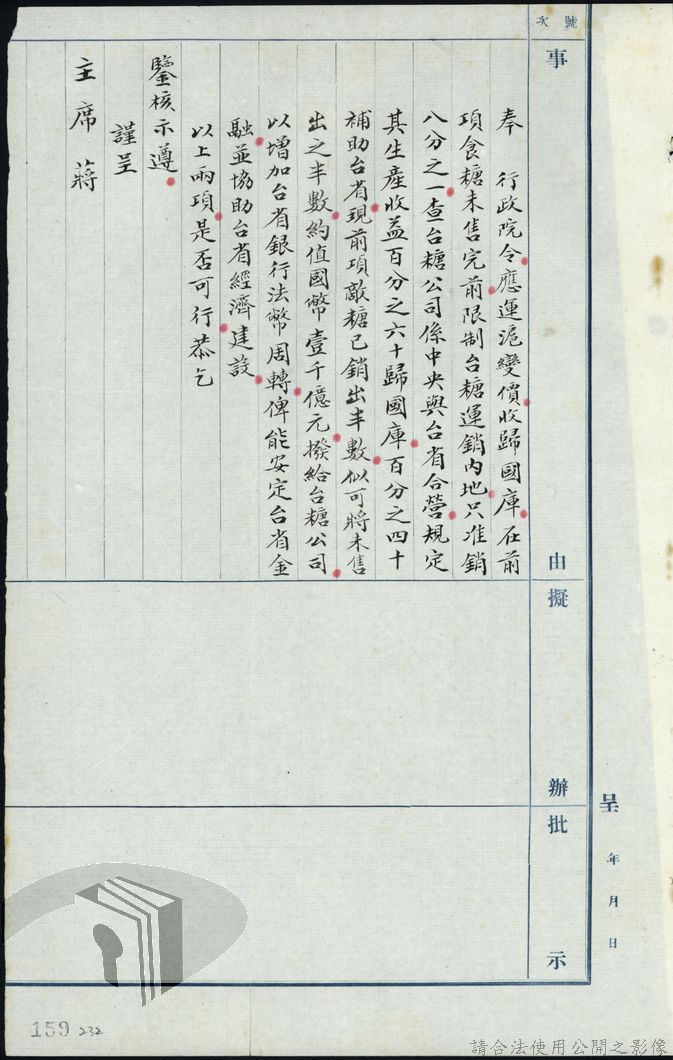 號次
事由
擬辦
批示
呈 年 月 日
奉 行政院令應運滬變價收歸國庫在前
項食糖未售完前限制台糖運銷內地只准銷
八分之一查台糖公司係中央與台省合營規定
其生產收益百分之六十歸國庫百分之四十
補助台省現前項敵糖已銷出半數似可將未售
出之半數約值國幣壹千億元撥給台糖公司
以增加台省銀行法幣周轉俾能安定台省金
融並協助台省經濟建設
以上兩項是否可行恭乞
鑒核示遵
謹呈
主席 蔣
159 232
請合法使用公開之影像